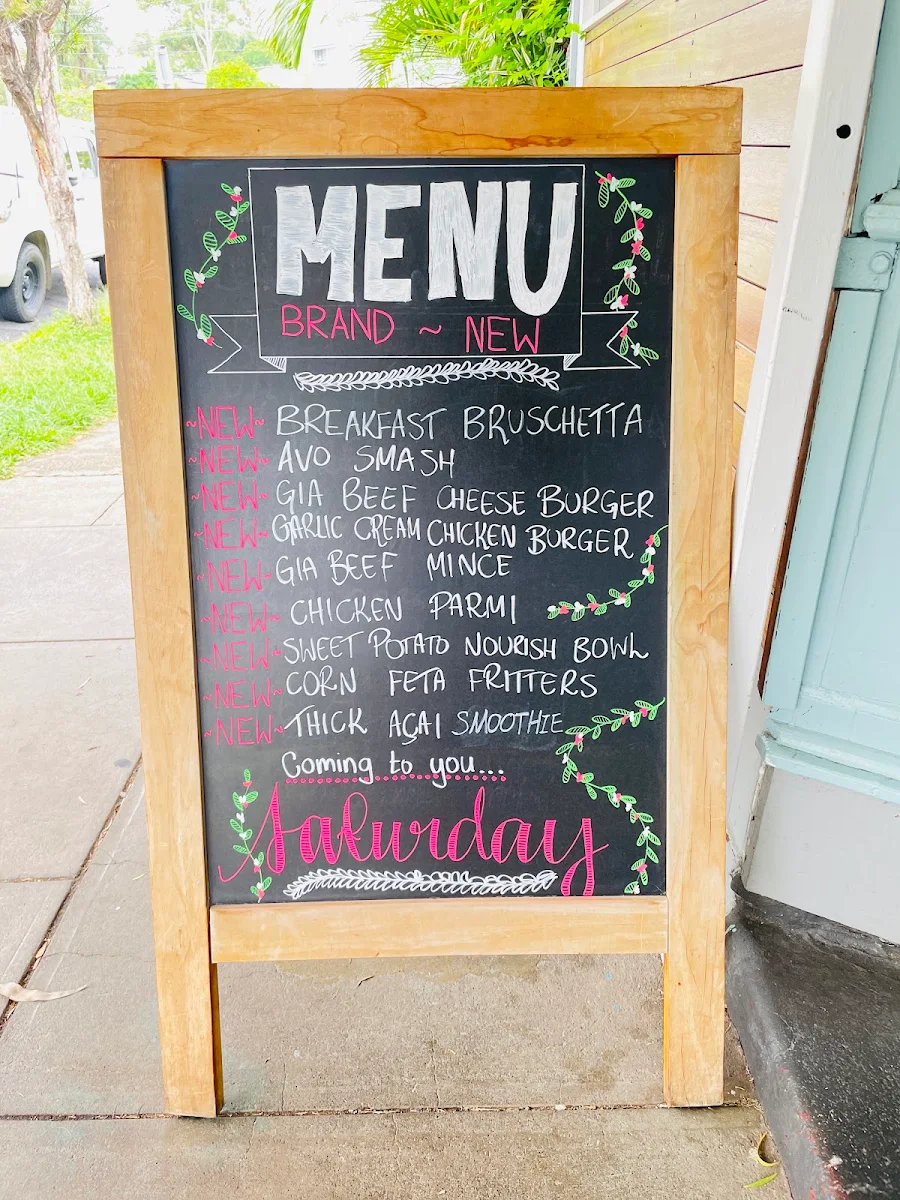 MENU
BRAND ~ NEW
~NEW~ BREAKFAST BRUSCHETTA
~NEW~ AVO SMASH
~NEW~ GIA BEEF CHEESE BURGER
~NEW~ GARLIC CREAM CHICKEN BURGER
~NEW~ GIA BEEF MINCE
~NEW~ CHICKEN PARMI
~NEW~ SWEET POTATO NOURISH BOWL
~NEW~ CORN FETA FRITTERS
~NEW~ THICK AÇAI SMOOTHIE
Coming to you...
Saturday